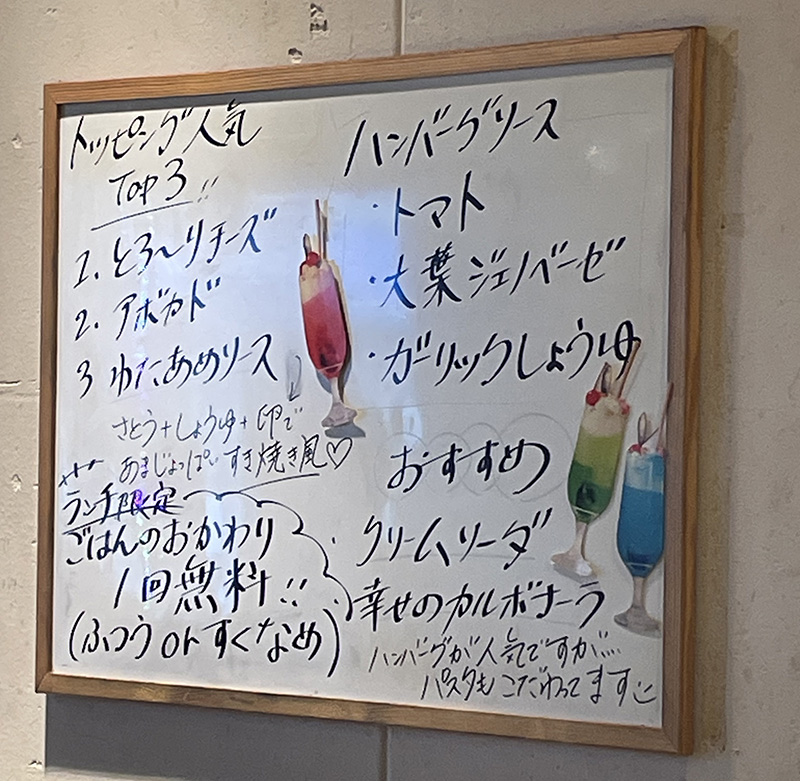 トッピング人気
TOP3!!
1. とろ〜りチーズ
2. アボカド
3 わたあめソース
さとう+しょうゆ+卵で
あまじょっぱい すき焼き風♡
ランチ限定
ごはんのおかわり
1回無料!!
(ふつう or すくなめ)
ハンバーグソース
・トマト
・大葉ジェノベーゼ
・ガーリックしょうゆ
おすすめ
クリームソーダ
幸せのカルボナーラ
ハンバーグが人気ですが…
パスタも こだわってます